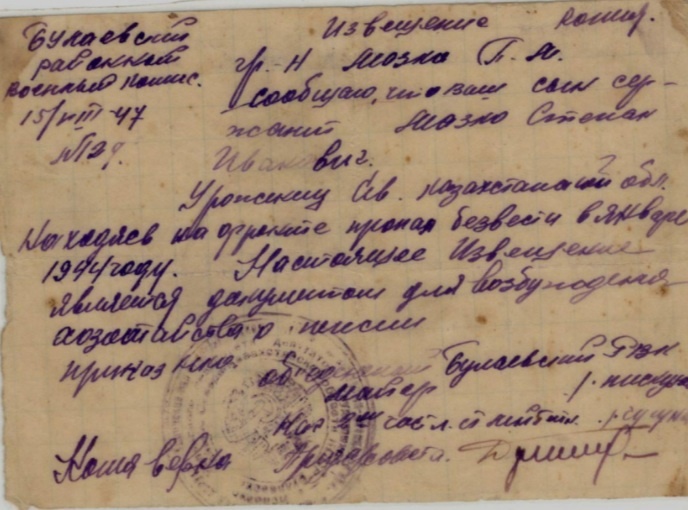 Булаевский
районный
военный комис.
15/VIII-47
№129.
Извещение копия.
гр-н Мозко П. М.
сообщаю, что ваш сын сер-
жант Мозко Степан
Иванович.
Уроженец Св. Казахстанской обл.
находясь на фронте пропал безвести в январе
1944 году. Настоящее Извещение
является документом для возбуждения
хозатайства о пенсии
приказ НКО
Булаевский РВК
майор
Нач 2 части ст лейтен.
Копия верна